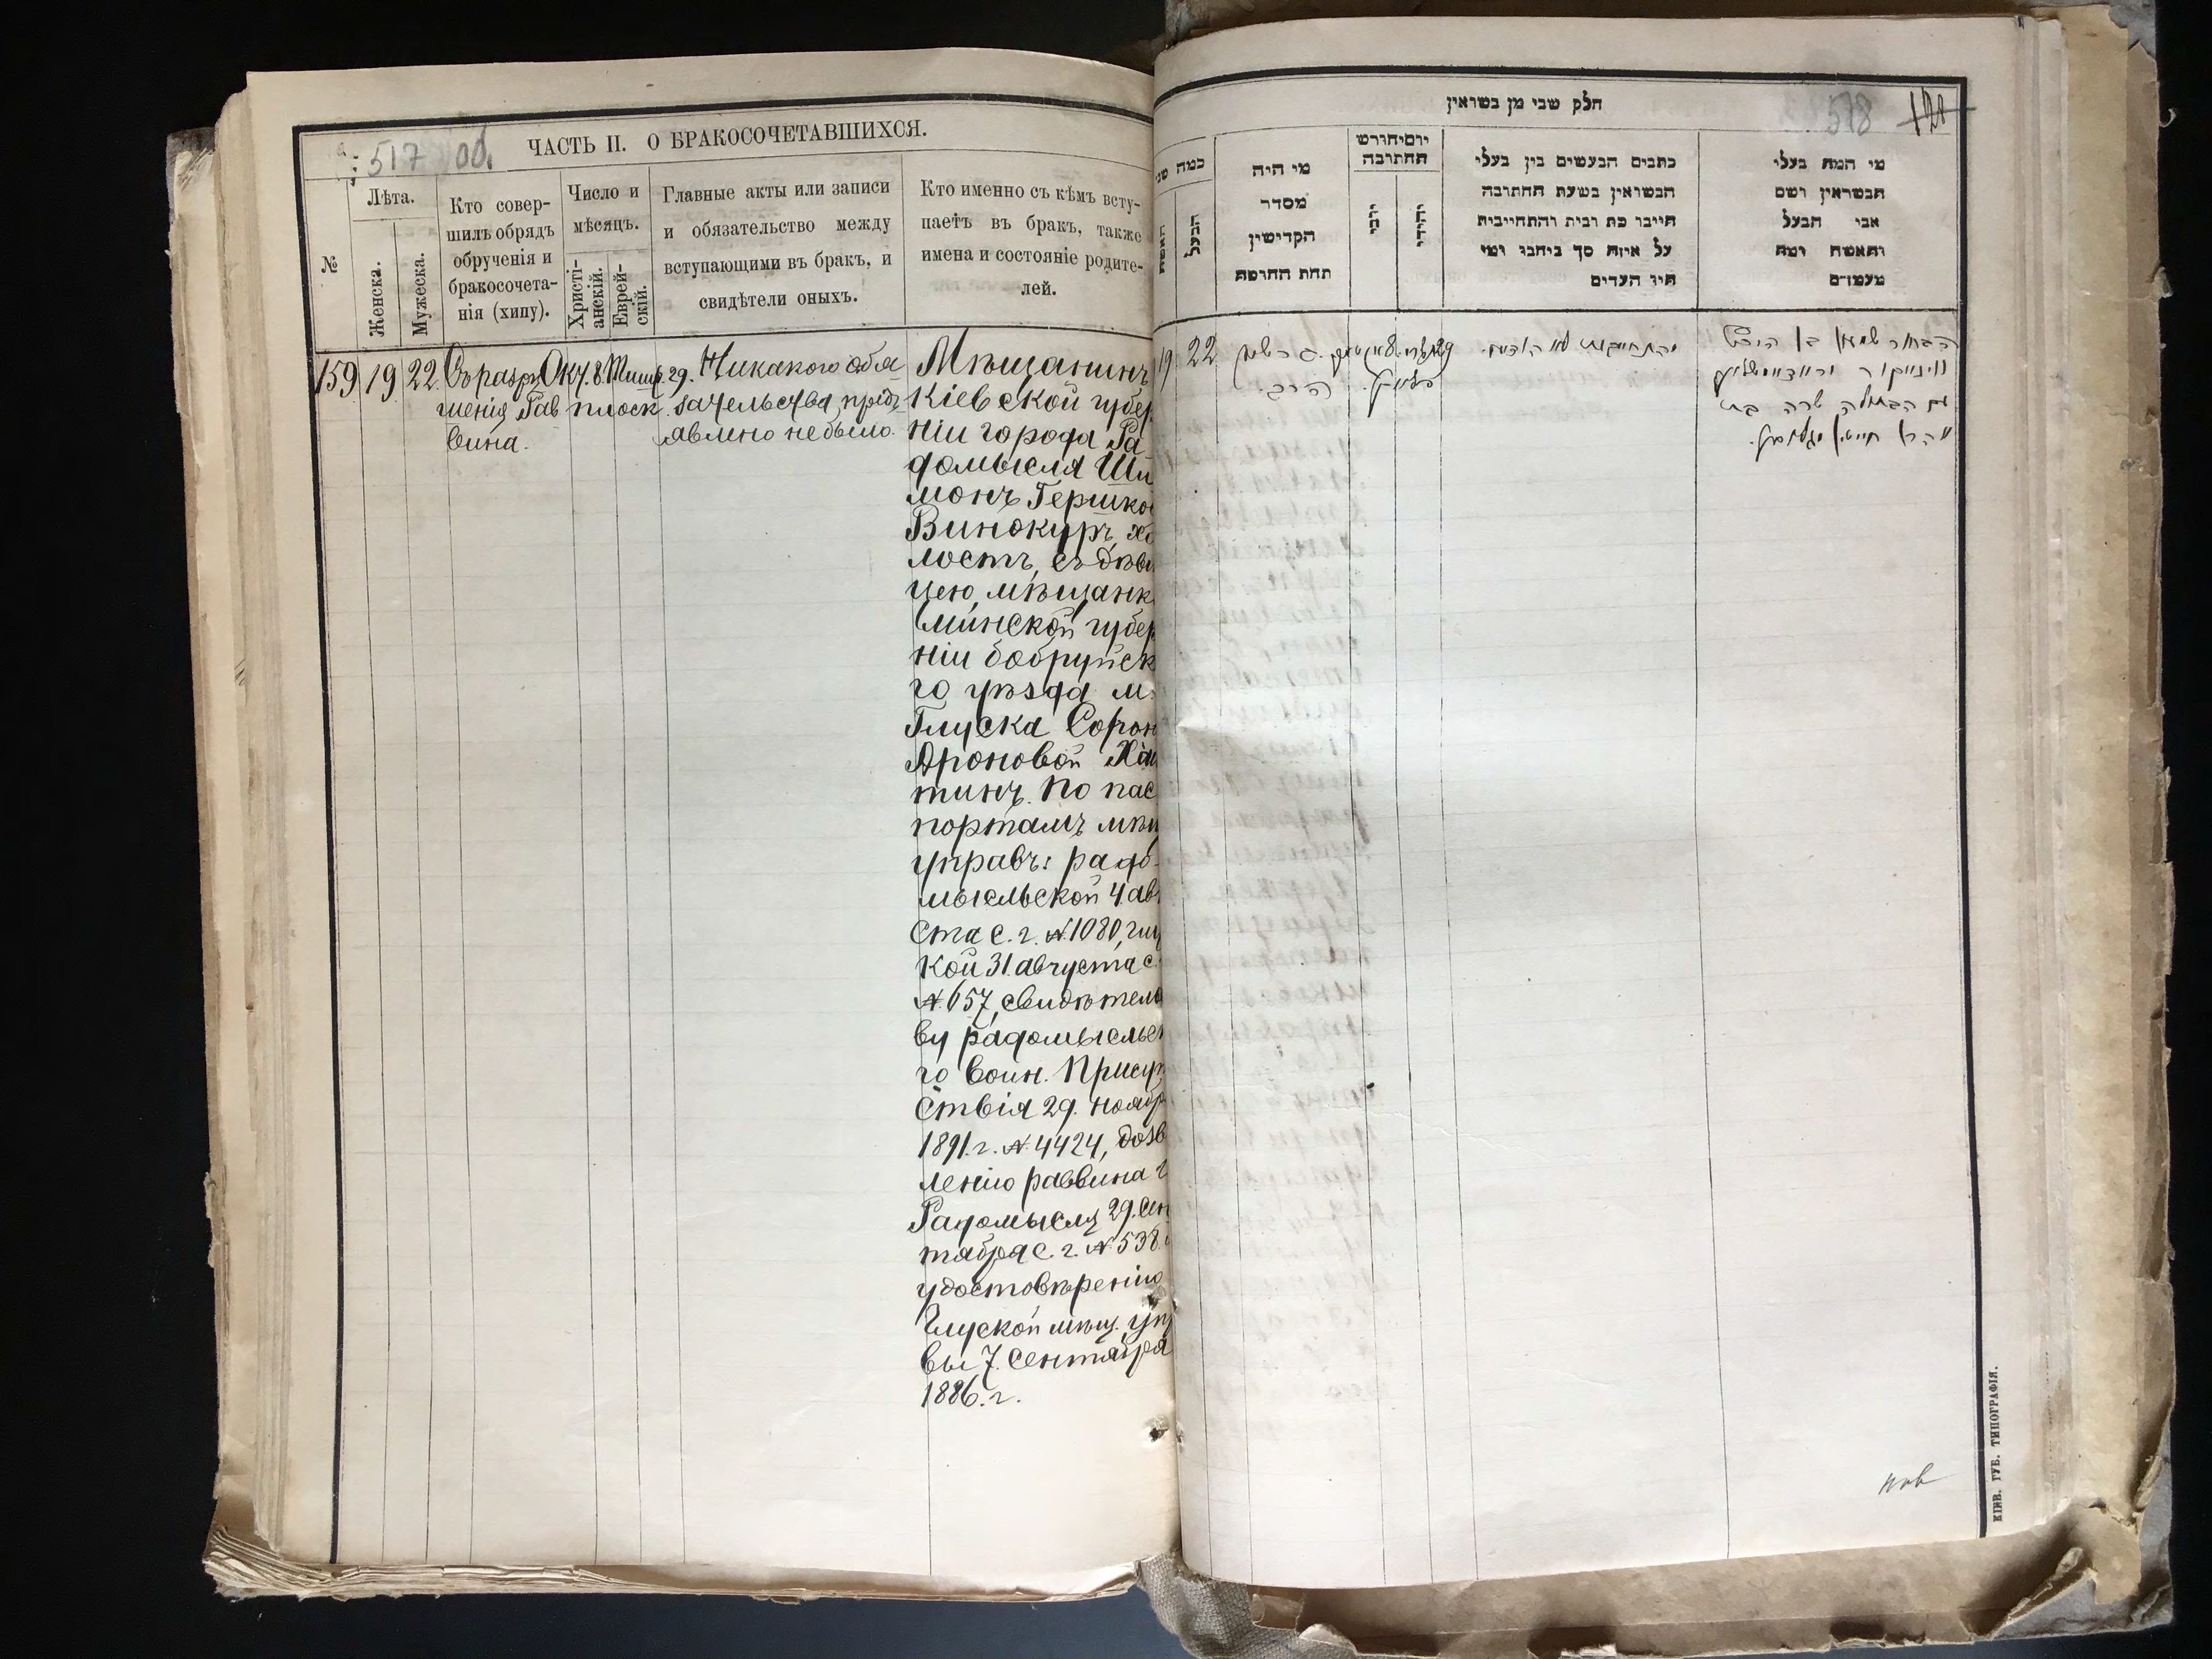 517 об.
ЧАСТЬ II. О БРАКОСОЧЕТАВШИХСЯ.
№
Лѣта.
Женска.
Мужеска.
Кто совер-
шилъ обрядъ
обрученія и
бракосочета-
нія (хипу).
Число и
мѣсяцъ.
Христі-
анскій.
Еврей-
скій.
Главные акты или записи
и обязательство между
вступающими въ бракъ, и
свидѣтели оныхъ.
Кто именно съ кѣмъ всту-
паетъ въ бракъ, также
имена и состояніе родите-
лей.
159
19
22
Съ разрѣ
шенія Рав
вина.
Окт. 8.
Тишр. 29.
плоск.
Никакого обя
зательства предъ
явлено не было.
Мѣщанинъ
Кіевской губер
ніи города Ра
домысля Ши
монъ Гершко
Винокуръ, хо
лостъ, съ дѣви
цею, мѣщанк
Минской губер
ніи бобруйск
го уѣзда м.
Глуска Сорою
Ароновой Хаи
тинъ. По пас
портамъ мѣщ
управъ: радо-
мысльской 4 авг
ста с. г. № 1080, глу
кой 31 августа с.
№ 657, свидѣтельс
ву радомысльск
го воин. Присут
ствія 29. ноябр
1891. г. № 4424, дозв
ленію раввина г
Радомысля 29. сен
тября с. г. № 538.
удостовѣренію
Глуской мѣщ. упр
вы 7. сентября
1886. г.
חלק שני מן נשואין
518
121
כמה שני
האשה
הבעל
מי היה
מסדר
הקדישין
תחת החופה
יום וחודש
החתונה
יהודי
כתבים הנעשים בין בעלי
הנשואין בשעת החתונה
חייבו כת ובית והתחייבות
על איזה סך ביחבו ומי
היו העדים
מי המה בעלי
הנשואין ושם
אבי הבעל
והאשה ומה
מעמדם
19
22
ברשיון
הרב.
8
29
והתחייבות לא הודיעו.
הבחור שימון בן הירש
ווינוקור
עם הבתולה שרה בת
אהרן חייטין
КІЕВ. ГУБ. ТИПОГРАФІЯ.